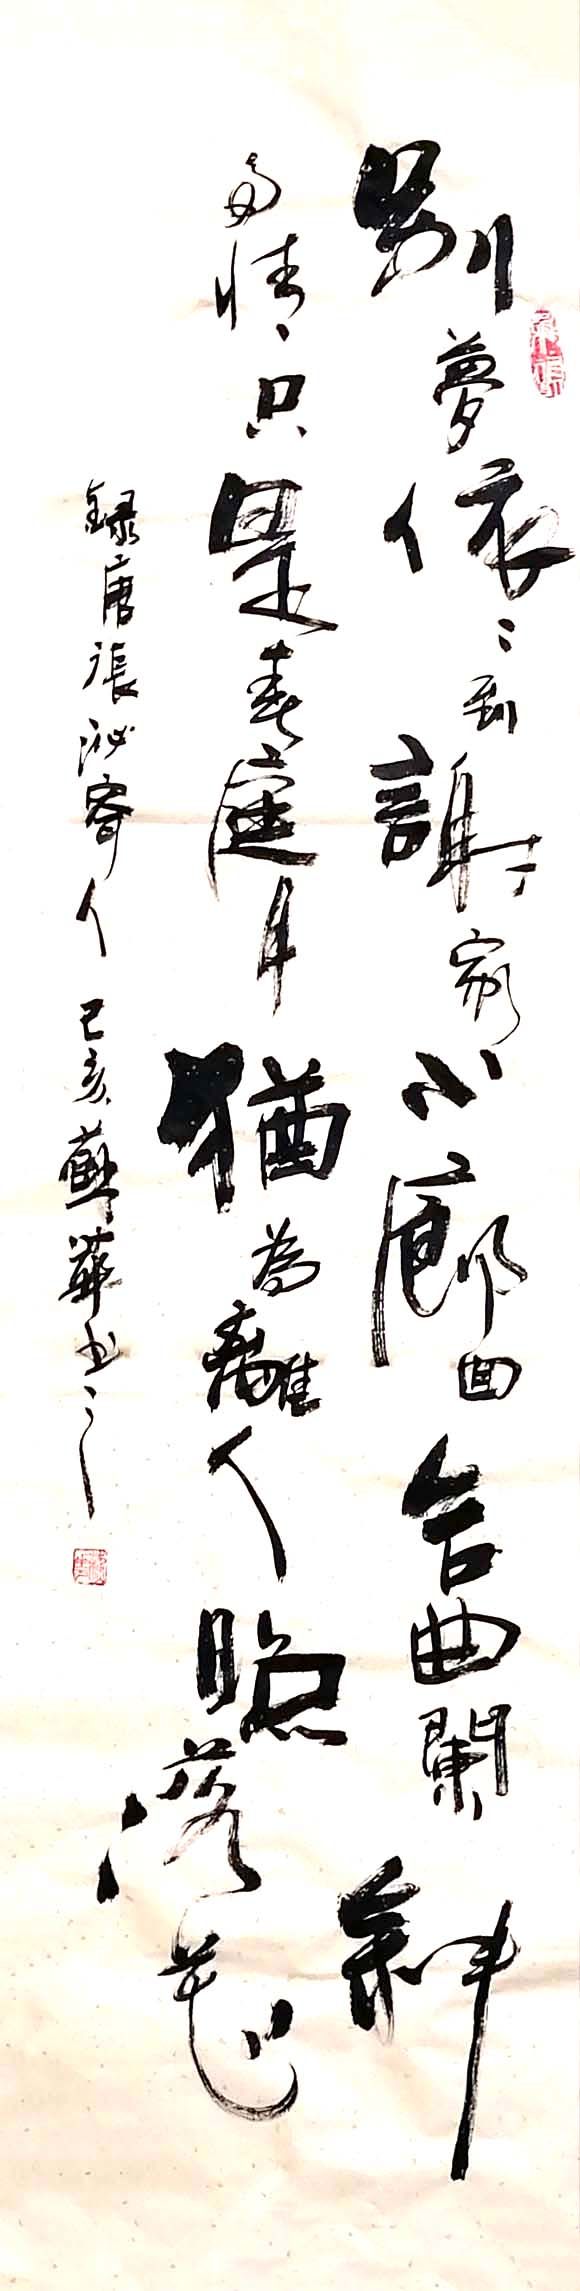 別夢依〻到謝家小廊囬合曲闌斜
多情只是春庭月猶為離人照落花
録唐張泌寄人 己亥蘇華书之